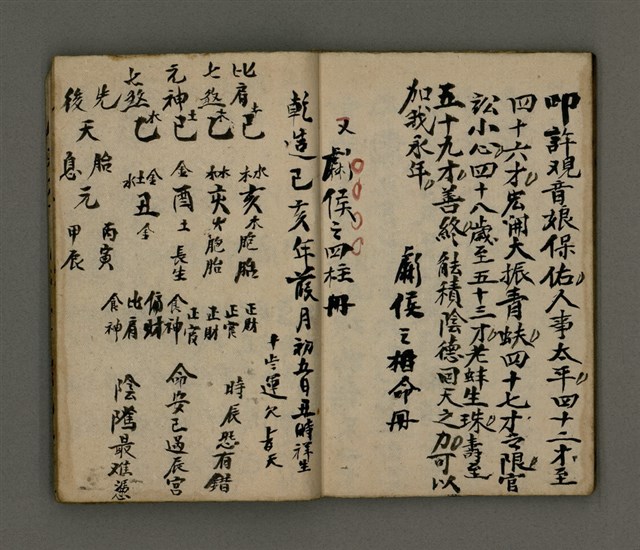 叩許观音娘保佑人事太平四十二才至
四十六才宏開大振青蚨四十七才之限官
訟小心四十八歲至五十三才老蚌生珠壽至
五十九才善終能積陰德回天之力可以
加我永年
劇侯之招命冊
又劇侯之四柱冊
乾造己亥年葭月初五日丑時祥生
十七運欠
比肩 己土 亥 水木 胞胎 正財
七煞 己木 亥 水木 火胞胎 正官 正財
元神 己土 酉 金 土 長生 食神 正官
七煞 己水 丑 金土水 金 比肩 偏財
先天胎元 丙寅 食神
後天息 甲辰
時辰恐有錯
命安己過辰宮
陰騭最难憑